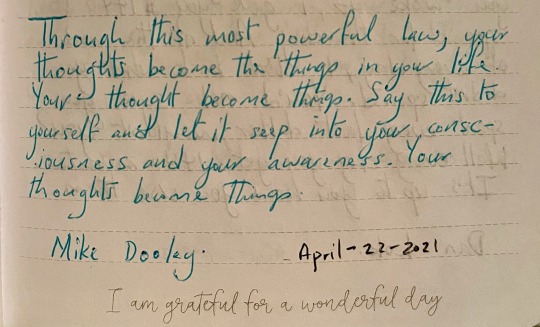 Through this most powerful law, your
thoughts become the things in your life.
Your thought become things. Say this to
yourself and let it seep into your consc-
iousness and your awareness. Your
thoughts become things.
Mike Dooley.
April-22-2021
I am grateful for a wonderful day